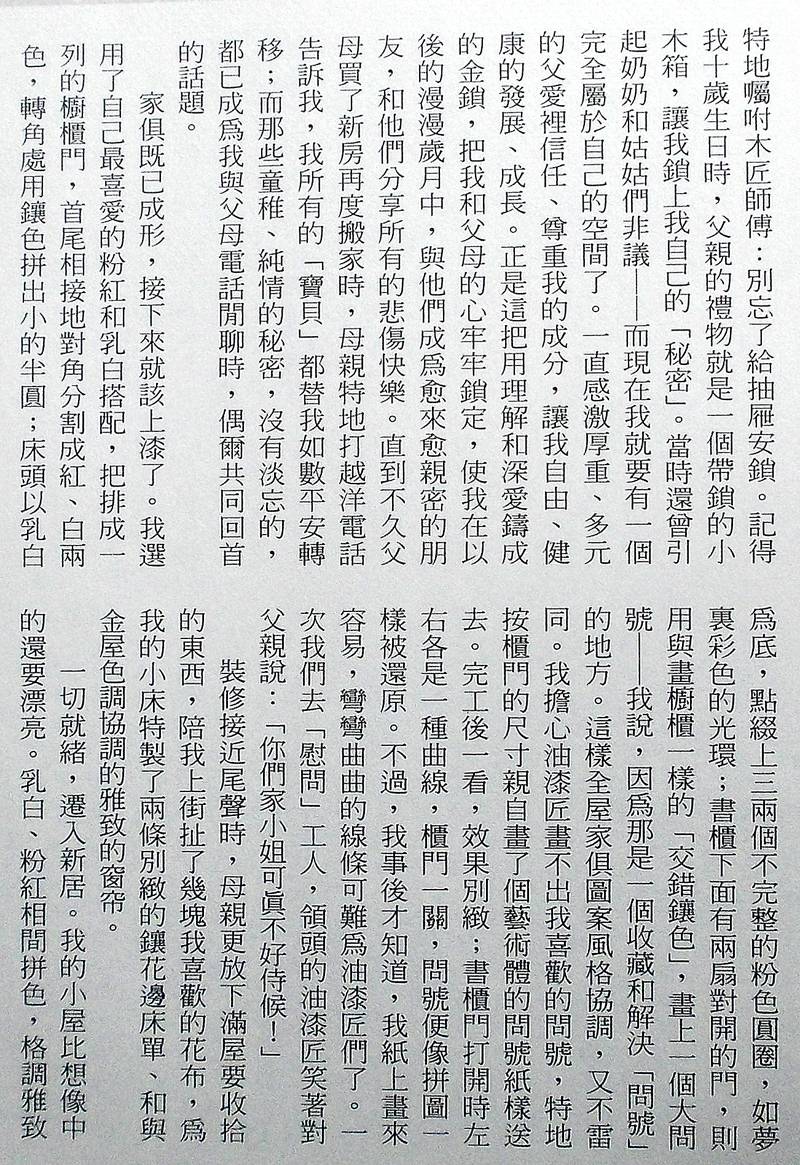 特地囑咐木匠師傅：別忘了給抽屜安鎖。記得
我十歲生日時，父親的禮物就是一個帶鎖的小
木箱，讓我鎖上我自己的「秘密」。當時還曾引
起奶奶和姑姑們非議——而現在我就要有一個
完全屬於自己的空間了。一直感激厚重、多元
的父愛裡信任、尊重我的成分，讓我自由、健
康的發展、成長。正是這把用理解和深愛鑄成
的金鎖，把我和父母的心牢牢鎖定，使我在以
後的漫漫歲月中，與他們成爲愈來愈親密的朋
友，和他們分享所有的悲傷快樂。直到不久父
母買了新房再度搬家時，母親特地打越洋電話
告訴我，我所有的「寶貝」都替我如數平安轉
移；而那些童稚、純情的秘密，沒有淡忘的，
都已成爲我與父母電話閒聊時，偶爾共同回首
的話題。
家俱既已成形，接下來就該上漆了。我選
用了自己最喜愛的粉紅和乳白搭配，把排成一
列的櫥櫃門，首尾相接地對角分割成紅、白兩
色，轉角處用鑲色拼出小的半圓；床頭以乳白
爲底，點綴上三兩個不完整的粉色圓圈，如夢
裏彩色的光環；書櫃下面有兩扇對開的門，則
用與畫櫥櫃一樣的「交錯鑲色」，畫上一個大問
號——我說，因爲那是一個收藏和解決「問號」
的地方。這樣全屋家俱圖案風格協調，又不雷
同。我擔心油漆匠畫不出我喜歡的問號，特地
按櫃門的尺寸親自畫了個藝術體的問號紙樣送
去。完工後一看，效果別緻；書櫃門打開時左
右各是一種曲線，櫃門一關，問號便像拼圖一
樣被還原。不過，我事後才知道，我紙上畫來
容易，彎彎曲曲的線條可難爲油漆匠們了。一
次我們去「慰問」工人，領頭的油漆匠笑著對
父親說：「你們家小姐可眞不好侍候！」
裝修接近尾聲時，母親更放下滿屋要收拾
的東西，陪我上街扯了幾塊我喜歡的花布，爲
我的小床特製了兩條別緻的鑲花邊床單、和與
金屋色調協調的雅致的窗帘。
一切就緒，遷入新居。我的小屋比想像中
的還要漂亮。乳白、粉紅相間拼色，格調雅致